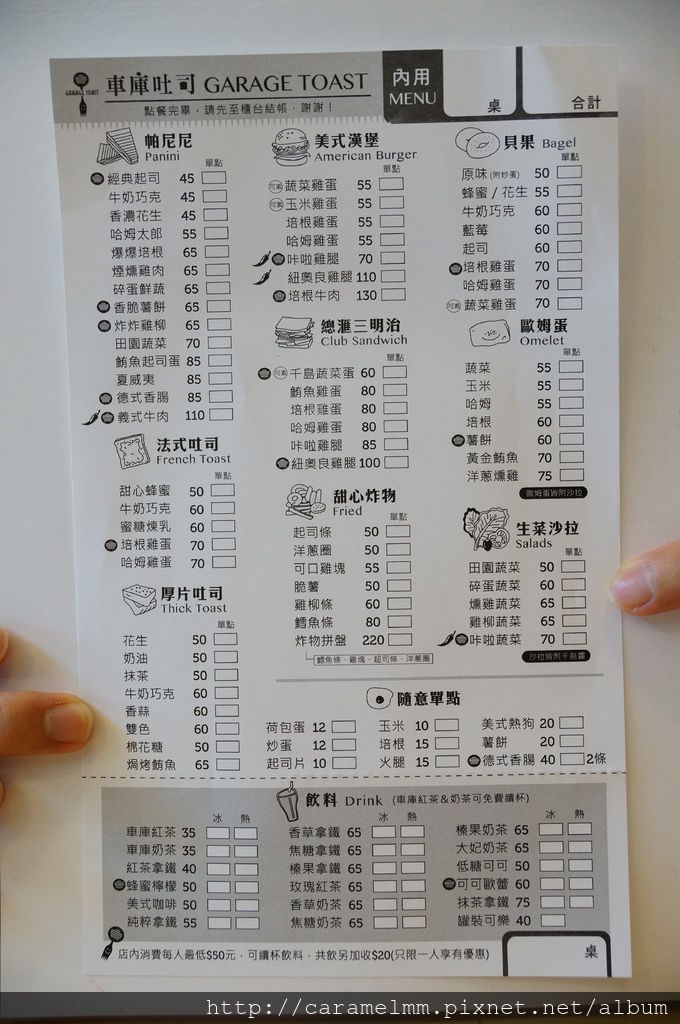 GARAGE TOAST
車庫吐司 GARAGE TOAST
點餐完畢，請先至櫃台結帳，謝謝！
內用
MENU
桌
合計
帕尼尼
Panini
單點
經典起司 45
牛奶巧克 45
香濃花生 45
哈姆太郎 55
爆爆培根 65
煙燻雞肉 65
碎蛋鮮蔬 65
香脆薯餅 65
炸炸雞柳 65
田園蔬菜 70
鮪魚起司蛋 85
夏威夷 85
德式香腸 85
義式牛肉 110
法式吐司
French Toast
單點
甜心蜂蜜 50
牛奶巧克 60
蜜糖煉乳 60
培根雞蛋 70
哈姆雞蛋 70
厚片吐司
Thick Toast
單點
花生 50
奶油 50
抹茶 50
牛奶巧克 60
香蒜 60
雙色 60
棉花糖 50
焗烤鮪魚 65
美式漢堡
American Burger
單點
可素 蔬菜雞蛋 55
可素 玉米雞蛋 55
培根雞蛋 55
哈姆雞蛋 55
咔啦雞腿 70
紐奧良雞腿 110
培根牛肉 130
總滙三明治
Club Sandwich
單點
可素 千島蔬菜蛋 60
鮪魚雞蛋 80
培根雞蛋 80
哈姆雞蛋 80
咔啦雞腿 85
紐奧良雞腿 100
甜心炸物
Fried
單點
起司條 50
洋蔥圈 50
可口雞塊 55
脆薯 50
雞柳條 60
鱈魚條 80
炸物拼盤 220
鱈魚條、雞塊、起司條、洋蔥圈
貝果 Bagel
單點
原味(附炒蛋) 50
蜂蜜/花生 55
牛奶巧克 60
藍莓 60
起司 60
培根雞蛋 70
哈姆雞蛋 70
可素 蔬菜雞蛋 70
歐姆蛋
Omelet
單點
蔬菜 55
玉米 55
哈姆 55
培根 60
薯餅 60
黃金鮪魚 70
洋蔥燻雞 75
歐姆蛋皆附沙拉
生菜沙拉
Salads
單點
田園蔬菜 50
碎蛋蔬菜 60
燻雞蔬菜 65
雞柳蔬菜 65
咔啦蔬菜 70
沙拉皆附千島醬
隨意單點
荷包蛋 12
炒蛋 12
起司片 10
玉米 10
培根 15
火腿 15
美式熱狗 20
薯餅 20
德式香腸 40 2條
飲料 Drink (車庫紅茶&奶茶可免費續杯)
冰 熱
車庫紅茶 35
車庫奶茶 35
紅茶拿鐵 40
蜂蜜檸檬 50
美式咖啡 50
純粹拿鐵 55
冰 熱
香草拿鐵 65
焦糖拿鐵 65
榛果拿鐵 65
玫瑰紅茶 65
香草奶茶 65
焦糖奶茶 65
冰 熱
榛果奶茶 65
大妃奶茶 65
低糖可可 50
可可歐蕾 60
抹茶拿鐵 75
罐裝可樂 40
店內消費每人最低$50元，可續杯飲料，共飲另加收$20(只限一人享有優惠)
桌
http://caramelmm.pixnet.net/album